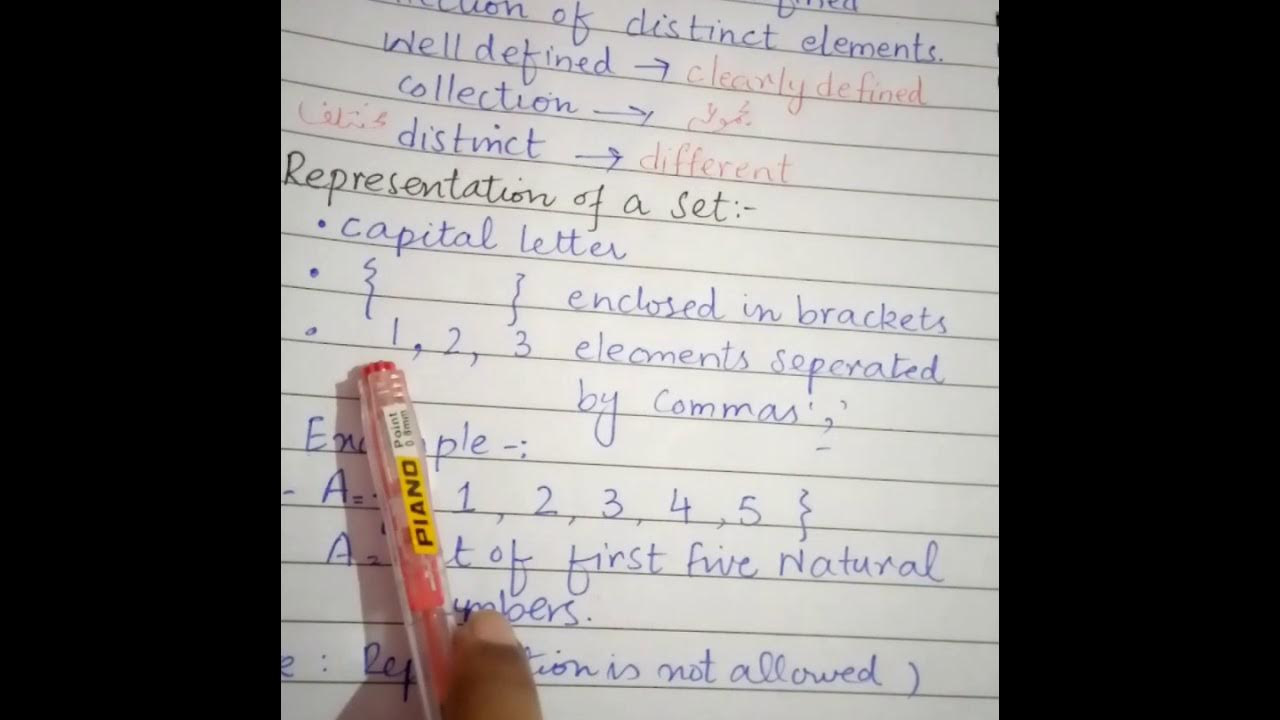 of distinct elements.
Well defined → clearly defined
collection →
distinct → different
Representation of a set:-
• capital letter
• { } enclosed in brackets
• 1, 2, 3 eleoments seperated
by commas ','
Ex ple -:
- A = 1, 2, 3, 4, 5 }
A = t of first five Natural
mbers.
e : Rep tion is not allowed )
Point
0.8mm
PIANO